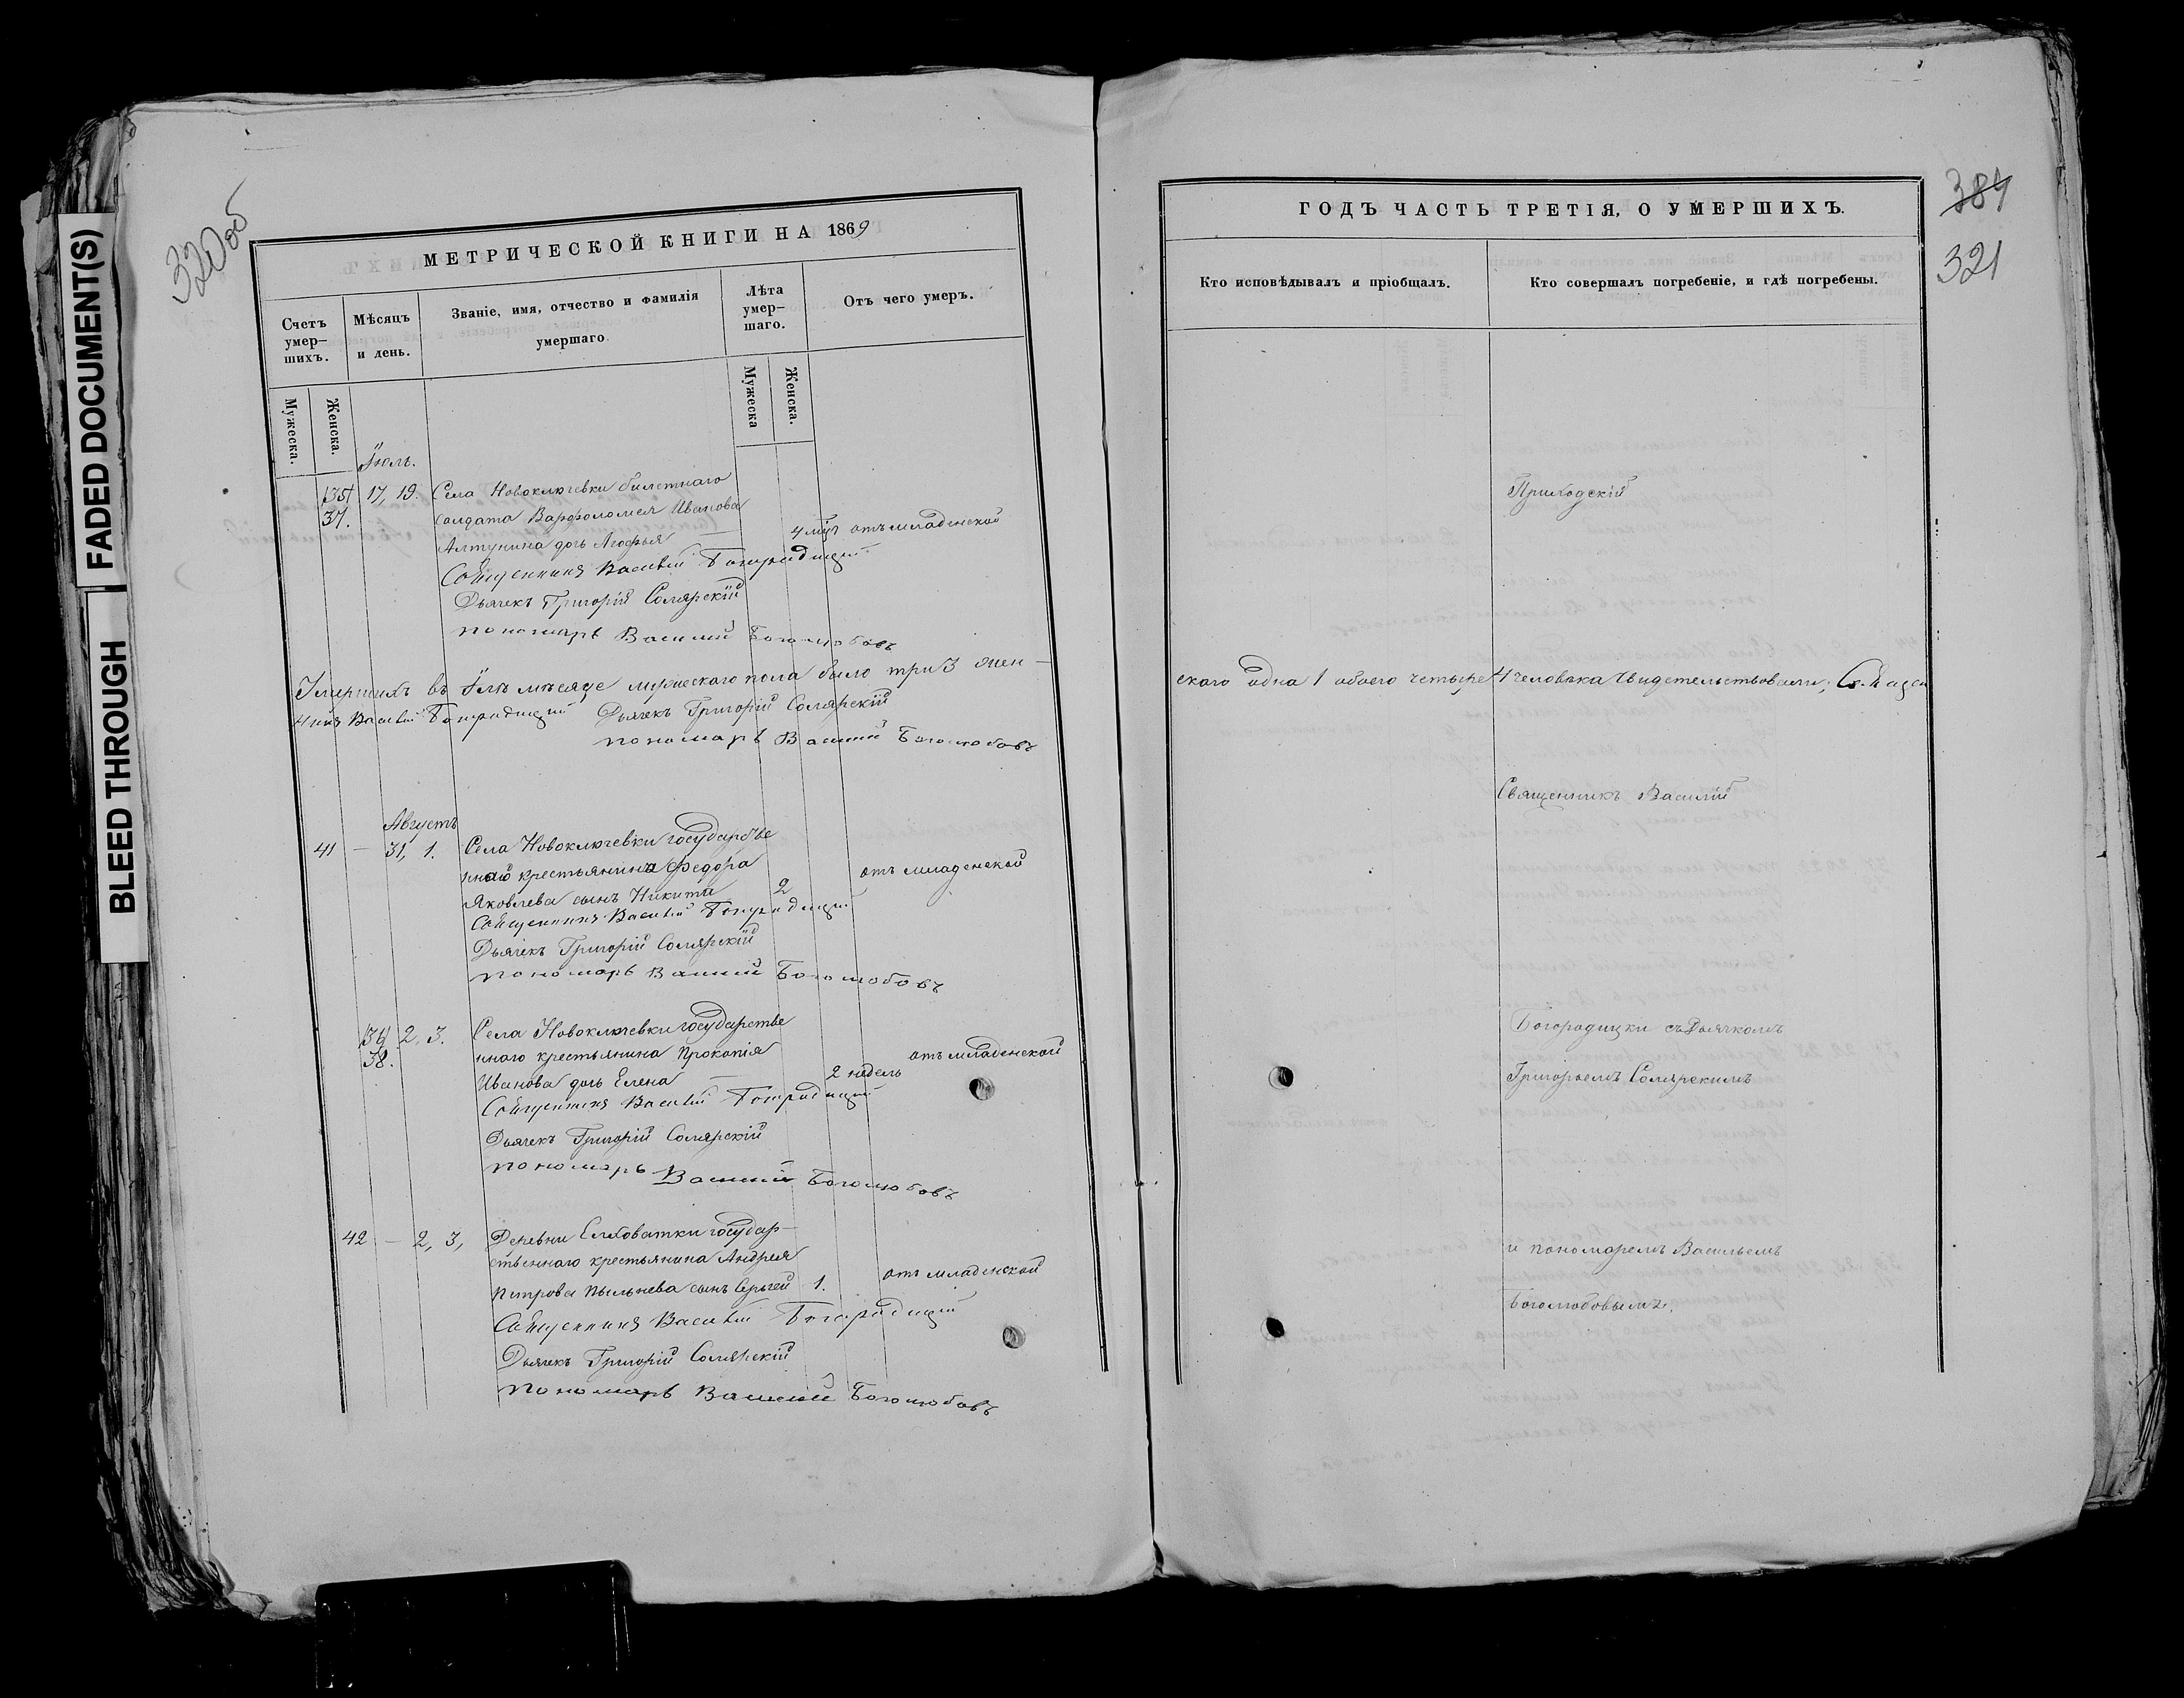 FADED DOCUMENT(S)
BLEED THROUGH
320об
МЕТРИЧЕСКОЙ КНИГИ НА 1869
Счетъ умер–шихъ.
Мѣсяцъ и день.
Званіе, имя, отчество и фамилія умершаго
Лѣта умер–шаго.
Отъ чего умеръ.
Мужеска.
Женска.
Мужеска
Женска.
Іюль.
17, 19. Села Новоключевки билетнаго
37. солдата Варфоломея Иванова
Алтунина дочь Агафья — 4 мцъ отъ младенской
Священникъ Василій Богородицкій
Дьячекъ Григорій Солярскій
пономарь Василий Боголюбовъ
Умершихъ въ Іюлѣ мѣсяце мужескаго пола было три 3 жен–
никъ Василій Богородицкій Дьячекъ Григорій Солярскій
пономарь Василий Боголюбовъ
Августъ
41 — 31, 1. Села Новоключевки государстве
ннаго крестьянина Федора
Яковлева сынъ Никита 2 отъ младенской
Священникъ Василій Богородицкій
Дьячекъ Григорій Солярскій
пономарь Василий Боголюбовъ
2, 3. Села Новоключевки государстве
38. ннаго крестьянина Прокопія
Иванова дочь Елена — 2 недель отъ младенской
Священникъ Василій Богородицкій
Дьячекъ Григорій Солярскій
пономарь Василий Боголюбовъ
42 — 2, 3, Деревни Елховатки государ–
ственнаго крестьянина Андрея
Петрова Пыльнева сынъ Сергей 1. отъ младенской
Священникъ Василій Богородицкій
Дьячекъ Григорій Солярскій
пономарь Василий Боголюбовъ
384
321
ГОДЪ ЧАСТЬ ТРЕТІЯ, О УМЕРШИХЪ.
Кто исповѣдывалъ и пріобщалъ.
Кто совершалъ погребеніе, и гдѣ погребены.
Приходскій
скаго одна 1 обоего четыре 4 человѣка Свидетельствовали; Священ
Священникъ Василій
Богородицки съ Дьячкомъ
Григорьемъ Солярскимъ
и пономаремъ Васильемъ
Боголюбовымъ.